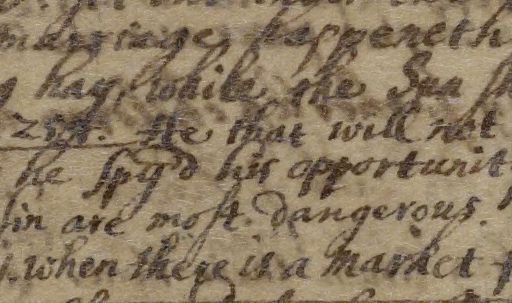 marriage happeneth
hay, while the Sun
251. He that will not
he spy'd his opportunit
in are most dangerous.
when there is a market